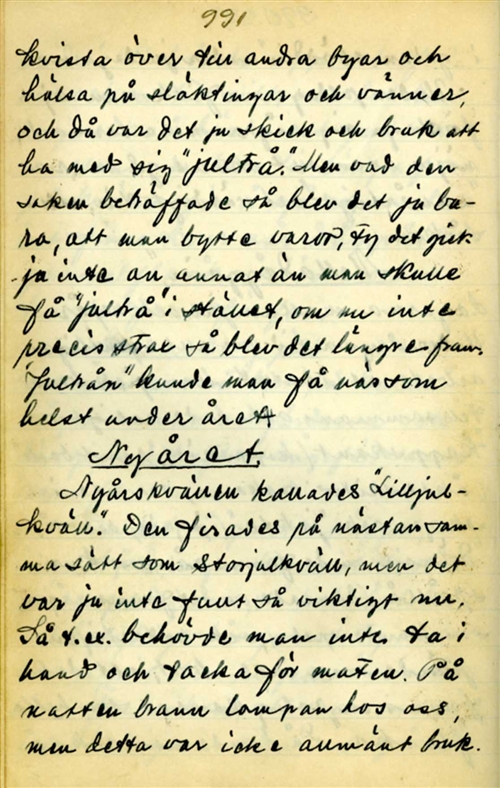 991
kvista över till andra byar och
hälsa på släktingar och vänner,
och då var det ju skick och bruk att
ha med sig "jultrå." Men vad den
saken beträffade så blev det ju ba-
ra, att man bytte varor, ty det gick
ju inte an annat än man skulle
få "jultrå" i stället, om nu inte
precis strax så blev det längre fram.
"Jultrån" kunde man få när som
helst under året
Nyåret.
Nyårskvällen kallades "Lilljul-
kväll". Den firades på nästan sam-
ma sätt som Storjulkväll, men det
var ju inte fullt så viktigt nu.
Så t.ex. behövde man inte ta i
hand och tacka för maten. På
natten brann lampan hos oss,
men detta var icke allmänt bruk.